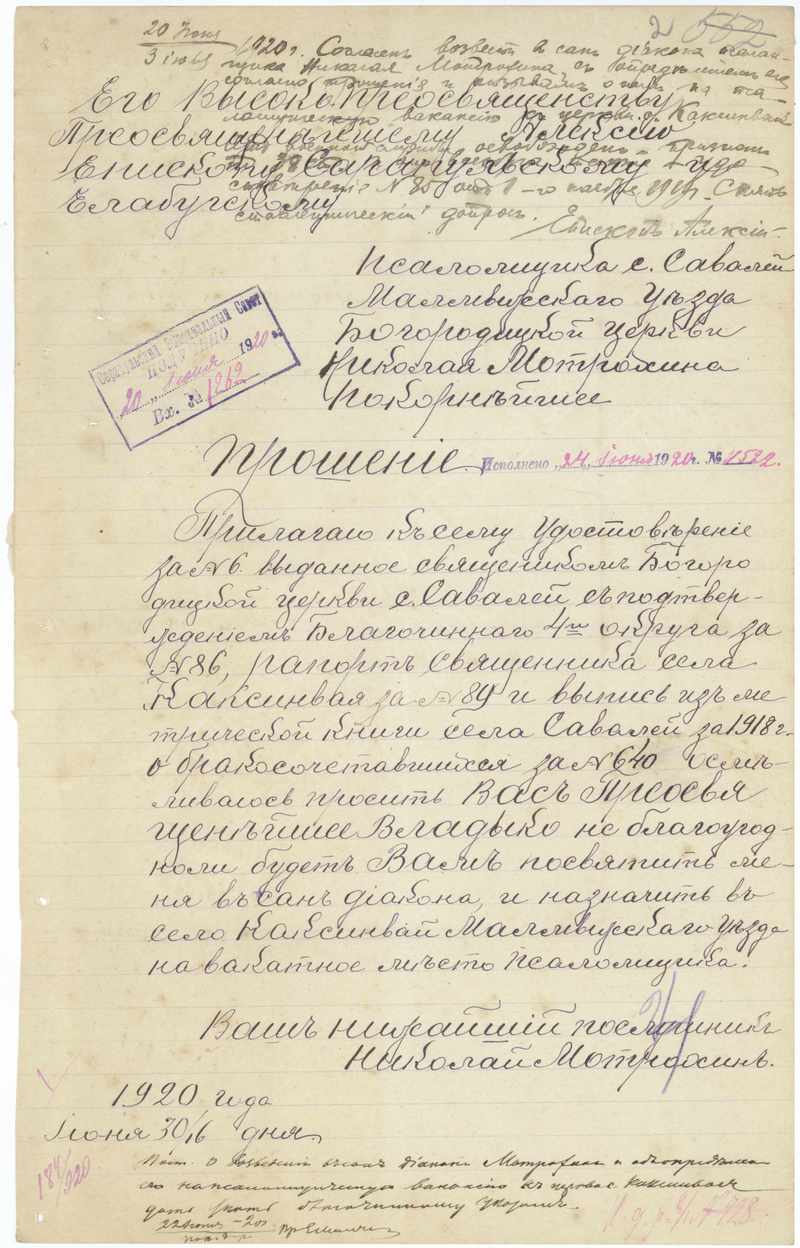 2 552
20 Июня
3 июля 1920 г. Согласен возвести в сан діакона псалом-
щика Николая Мотрохина съ опредѣленіем его
согласно прошенія и на
вакансію къ церкви с. Каксинвай
освобожден
№ 85 1919 г. Снять
ставленническій допрос. Епископъ Алексій.
Его Высокопреосвященству
Преосвященнѣйшему Алексею
Епископу Сарапульскому и
Елабугскому
Псаломщика с. Савалей
Малмыжского Уѣзда
Богородицкой церкви
Николая Мотрохина
Покорнѣйшее
Сарапульский Епархиальный Совет
ПОЛУЧЕНО
20 " Июня 1920 г.
Вх. № 1262
Прошеніе.
Исполнено "24" Июня 1920 г. № 1522.
Прилагаю къ сему Удостовѣреніе
за № 6. выданное священикомъ Богоро
дицкой церкви с. Савалей съ подтвер-
жденіемъ Благочиннаго 4го округа за
№ 86, рапортъ священника села
Каксинвая за № 84 и выпись изъ ме-
трической книги села Савалей за 1918 г.
о бракосочетавшихся за № 640 осмѣ-
ливаюсь просить Васъ Преосвя
щенѣйшее Владыко не благоугод-
ноли будетъ Вамъ посвятить ме-
ня въ санъ діакона, и назначить въ
село Каксинвай Малмыжскаго Уѣзда
на вакатное мѣсто псаломщика.
Вашъ нижайшій послушникъ
Николай Мотрохинъ.
1920 года
Іюня 30/16 дня.
184/920
о діакона Мотрохина и
на псаломщическую вакансію къ церкви с. Каксинвай
дать знать благочинному указомъ.